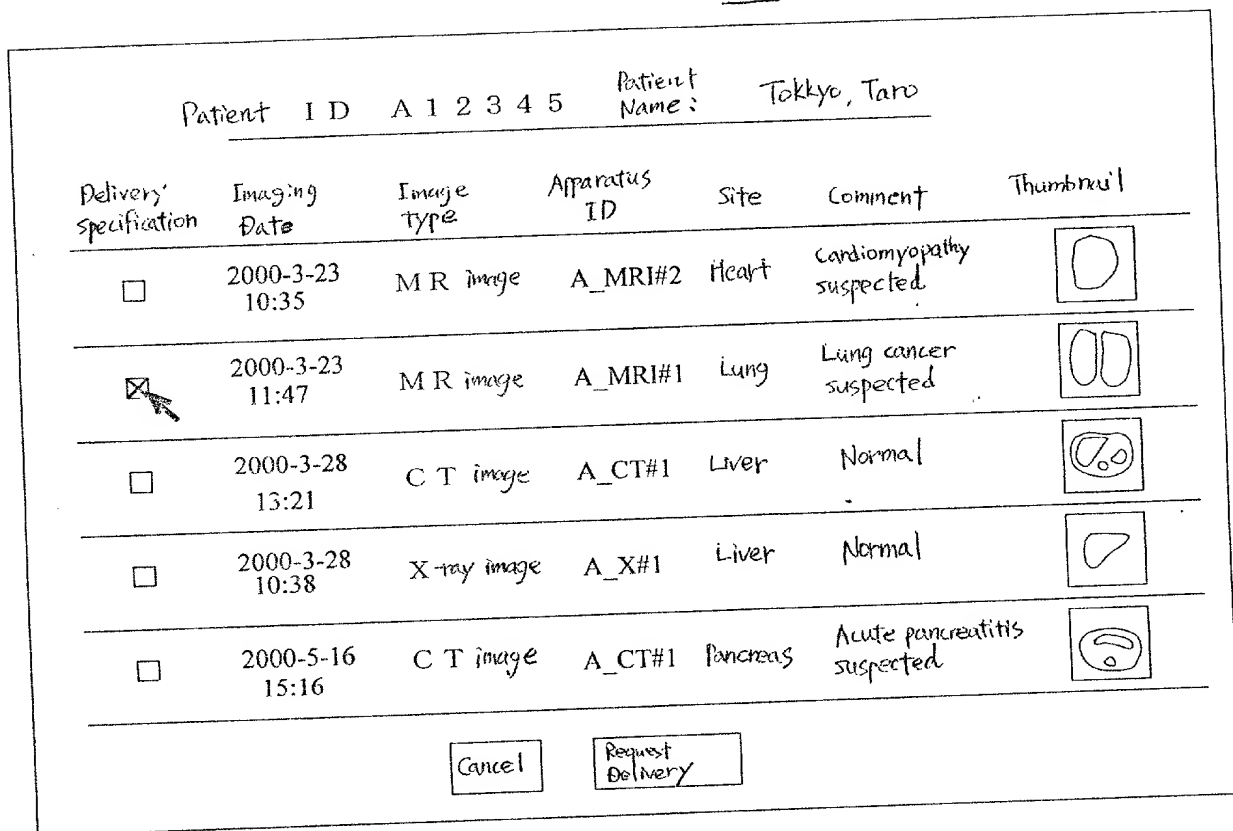 Patient ID A12345 Patient Name: Tokkyo, Taro
Delivery specification Imaging Date Image type Apparatus ID Site Comment Thumbnail
2000-3-23 10:35 MR image A_MRI#2 Heart Cardiomyopathy suspected
2000-3-23 11:47 MR image A_MRI#1 Lung Lung cancer suspected
2000-3-28 13:21 CT image A_CT#1 Liver Normal
2000-3-28 10:38 X-ray image A_X#1 Liver Normal
2000-5-16 15:16 CT image A_CT#1 Pancreas Acute pancreatitis suspected
Cancel Request Delivery